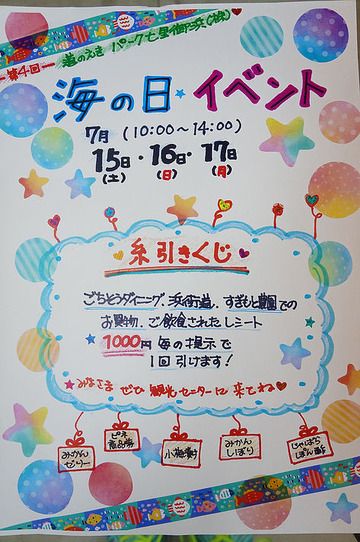 第4回 道のえき パーク七里御浜(株)
海の日★イベント
7月 (10:00～14:00)
15日・16日・17日
(土) (日) (月)
糸引きくじ
ごちそうダイニング、浜街道、すぎもと農園での
お買物、ご飲食されたレシート
★1000円毎の提示で
1回引けます!
★みなさま ぜひ 観光センターに 来てね♥
みかんゼリー
ピネ商品券
小梅漬け
みかんしぼり
じゃばらぽん酢